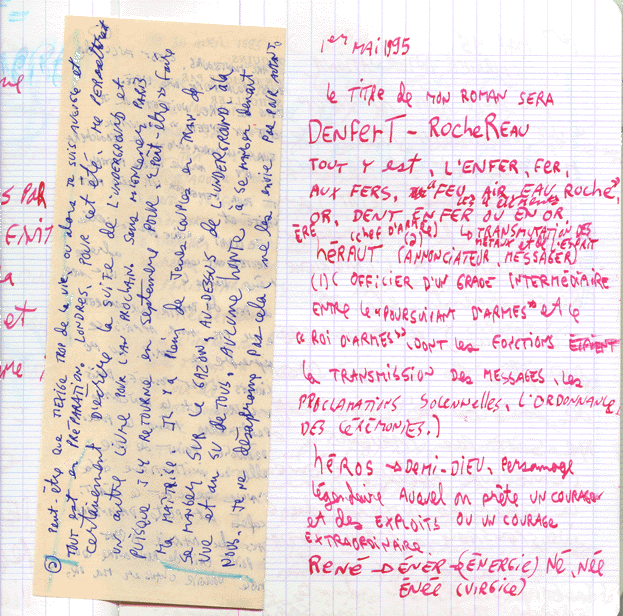 ② Peut être que j'exige trop de la vie ou alors je suis nerveuse et
tout est en préparation. Londres, pour cet été. Me permettrait
certainement d'écrire la suite de l'underground et
un autre livre pour l'an prochain. Sans m'éloigner Paris
puisque j'y retourne en septembre pour "peut être" faire
ma maîtrise. Il y a plein de jeunes couples en train de
se manger sur le gazon, au-dessus de l'underground, à la
vue et au su de tous, aucune honte à se manger devant
nous. Je ne désapprouve pas cela, ne les envie pas pour autant,
1er MAI 1995
le TITRE de MON ROMAN SERA
DENFERT - ROCHEREAU
TOUT Y est, L'ENFER, FER,
AUX FERS, "FEU, AIR, EAU, ROCHE",
les 4 éléments
OR, DENT, EN FER OU EN OR,
ÈRE (chef D'ARMÉE) LA TRANSMUTATION DES
MÉTAUX et DE L'ESPRIT
HÉRAUT (ANNONCIATEUR, MESSAGER)
(1) (OFFICIER D'UN GRADE INTERMÉDIAIRE
ENTRE le "POURSUIVANT D'ARMES" et le
"ROI D'ARMES", DONT les FONCTIONS ÉTAIENT
la TRANSMISSION DES MESSAGES, les
PROCLAMATIONS SOLENNELLES, L'ORDONNANCE
DES CÉRÉMONIES.)
HÉROS → DEMI-DIEU, Personnage
légendaire Auquel on prête UN COURAGE
et des EXPLOITS OU UN COURAGE
EXTRAORDINAIRE
RENÉ → DÉNER → (ÉNERGIE) NÉ, NÉE
ÉNÉE (VIRGILE)